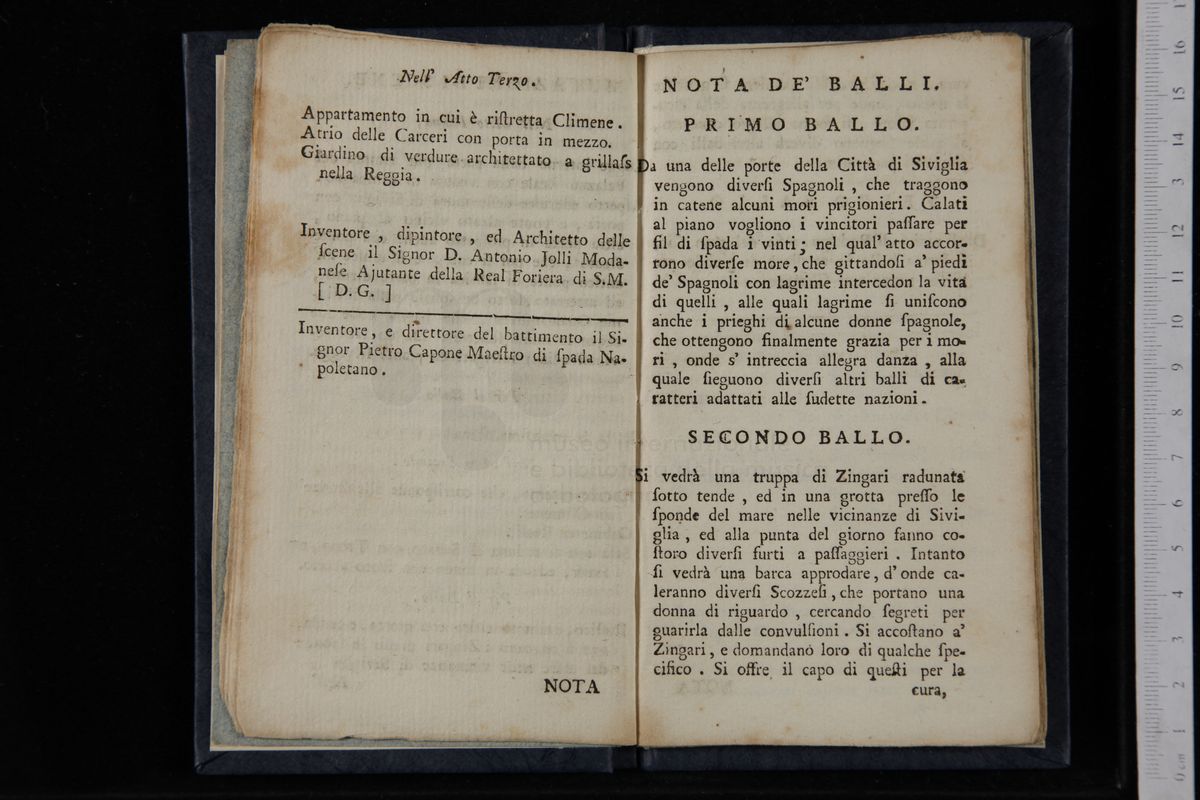 Nell' Atto Terzo.
Appartamento in cui è riſtretta Climene.
Atrio delle Carceri con porta in mezzo.
Giardino di verdure architettato a grillaſs
nella Reggia.
Inventore, dipintore, ed Architetto delle
ſcene il Signor D. Antonio Jolli Moda-
neſe Ajutante della Real Foriera di S.M.
[ D.G. ]
Inventore, e direttore del battimento il Si-
gnor Pietro Capone Maeſtro di ſpada Na-
poletano.
NOTA
NOTA DE' BALLI.
PRIMO BALLO.
Da una delle porte della Città di Siviglia
vengono diverſi Spagnoli, che traggono
in catene alcuni mori prigionieri. Calati
al piano vogliono i vincitori paſſare per
fil di ſpada i vinti; nel qual' atto accor-
rono diverſe more, che gittandoſi a' piedi
de' Spagnoli con lagrime intercedon la vita
di quelli, alle quali lagrime ſi uniſcono
anche i prieghi di alcune donne ſpagnole,
che ottengono finalmente grazia per i mo-
ri, onde s' intreccia allegra danza, alla
quale ſieguono diverſi altri balli di ca-
ratteri adattati alle ſudette nazioni.
SECONDO BALLO.
Si vedrà una truppa di Zingari radunata
ſotto tende, ed in una grotta preſſo le
ſponde del mare nelle vicinanze di Sivi-
glia, ed alla punta del giorno fanno co-
ſtoro diverſi furti a paſſaggieri. Intanto
ſi vedrà una barca approdare, d' onde ca-
leranno diverſi Scozzeſi, che portano una
donna di riguardo, cercando ſegreti per
guarirla dalle convulſioni. Si accoſtano a'
Zingari, e domandano loro di qualche ſpe-
cifico. Si offre il capo di queſti per la
cura,
0 cm 1 2 3 4 5 6 7 8 9 10 11 12 13 14 15 16 17